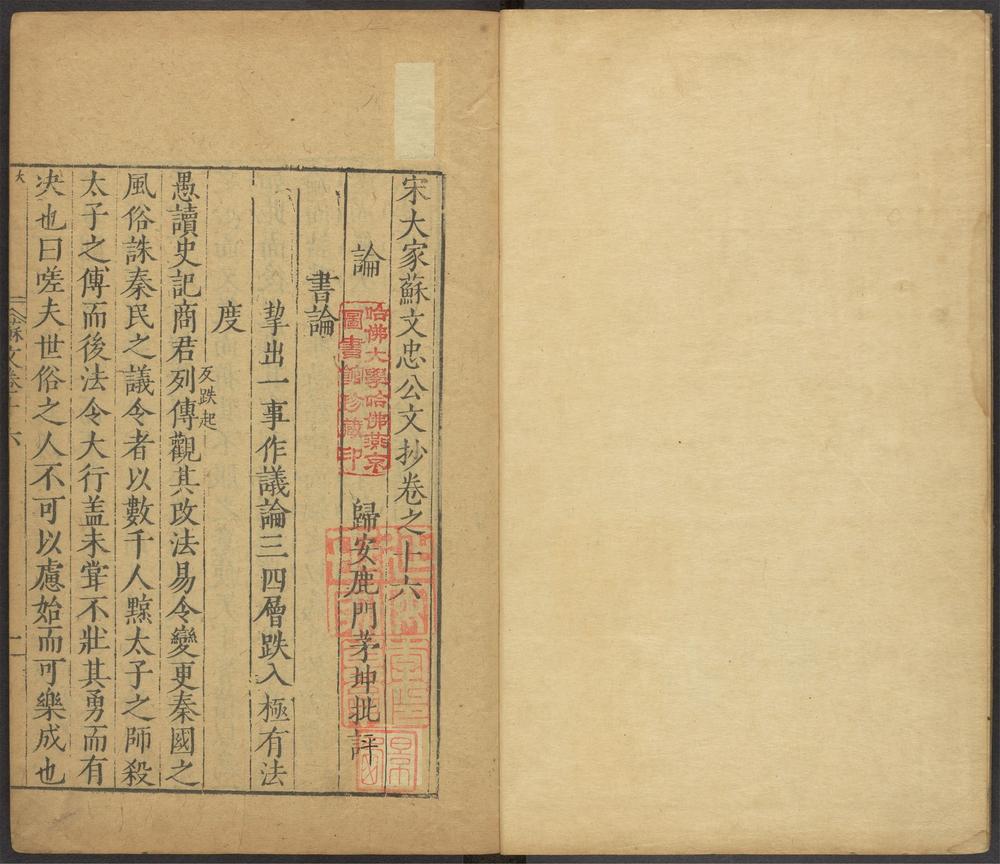 宋大家蘇文忠公文抄卷之十六
歸安鹿門茅坤批評
論
哈佛大學哈佛燕京
圖書館珍藏印
書論
挈出一事作議論三四層跌入極有法
度
反跌起
愚讀史記商君列傳觀其改法易令變更秦國之
風俗誅秦民之議令者以數千人黥太子之師殺
太子之傅而後法令大行盖未甞不壯其勇而有
决也曰嗟夫世俗之人不可以慮始而可樂成也